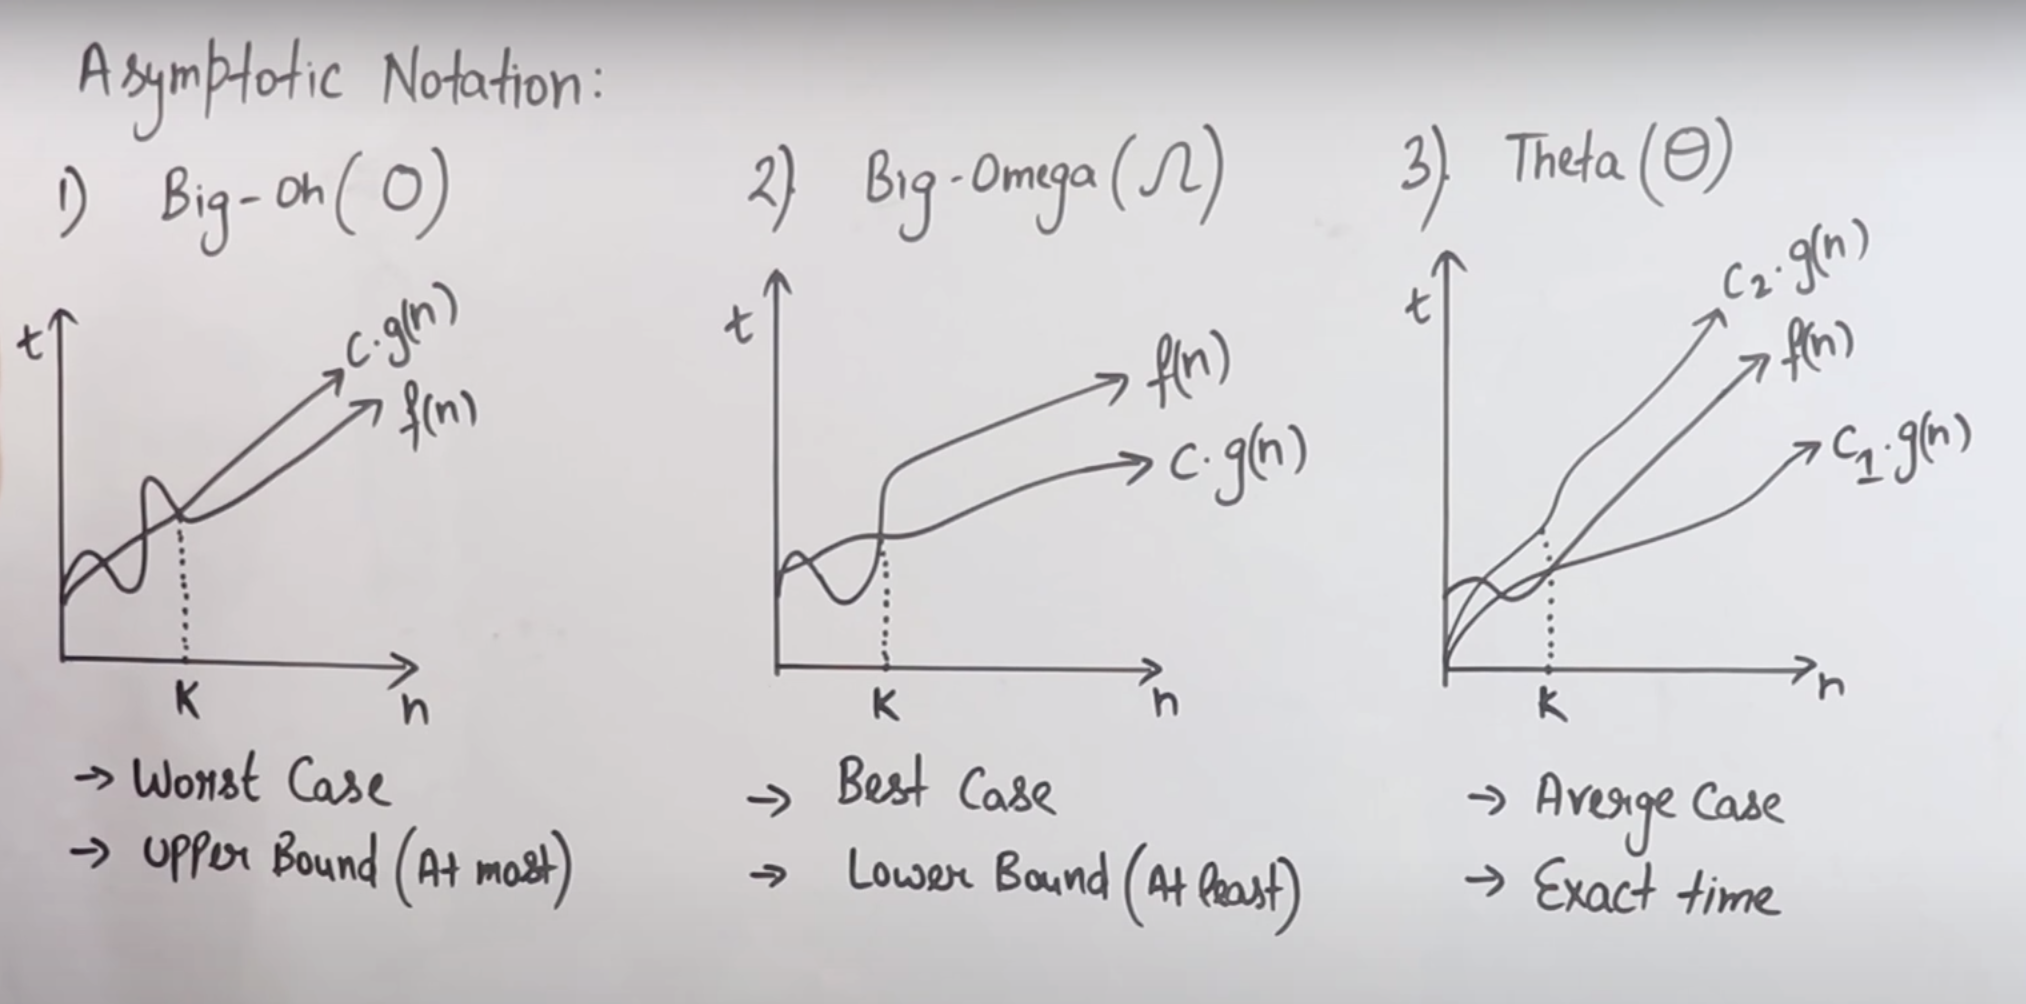 Asymptotic Notation:
1) Big-Oh (O)
t
c.g(n)
f(n)
K
n
→ Worst Case
→ Upper Bound (At most)
2) Big-Omega (Ω)
t
f(n)
c.g(n)
K
n
→ Best Case
→ Lower Bound (At least)
3) Theta (Θ)
t
C2.g(n)
f(n)
C1.g(n)
K
n
→ Averge Case
→ Exact time